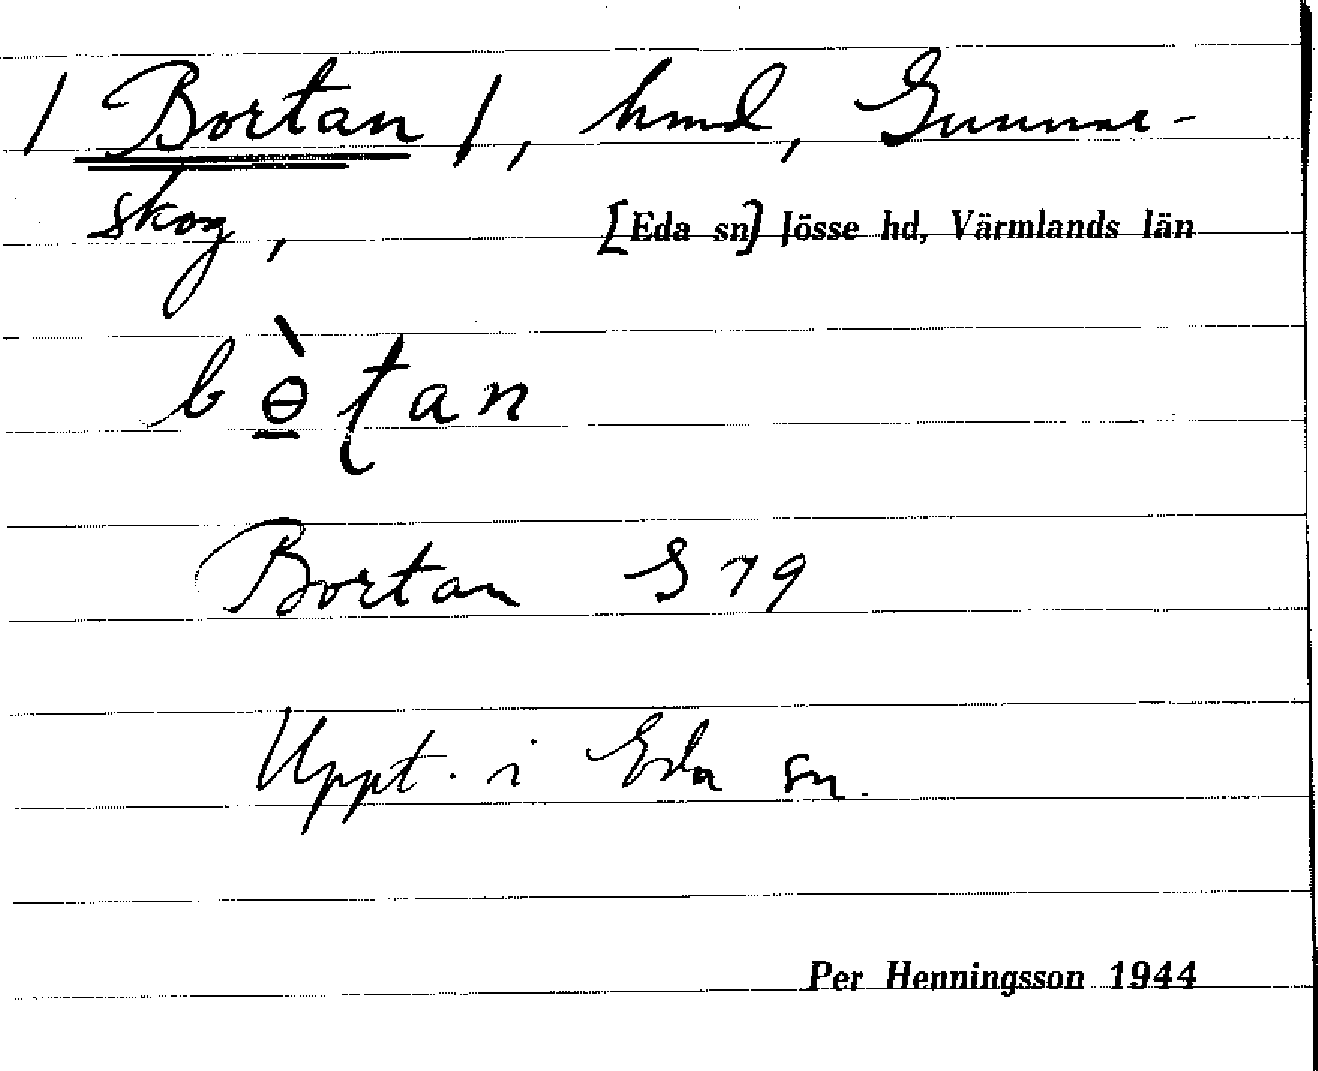 / Bortan /, hmd, Gunnar-
skog, [Eda sn] Jösse hd, Värmlands län
bɵ̱̀ʈan
Bortan S 79
Uppt. i Eda sn.
Per Henningsson 1944